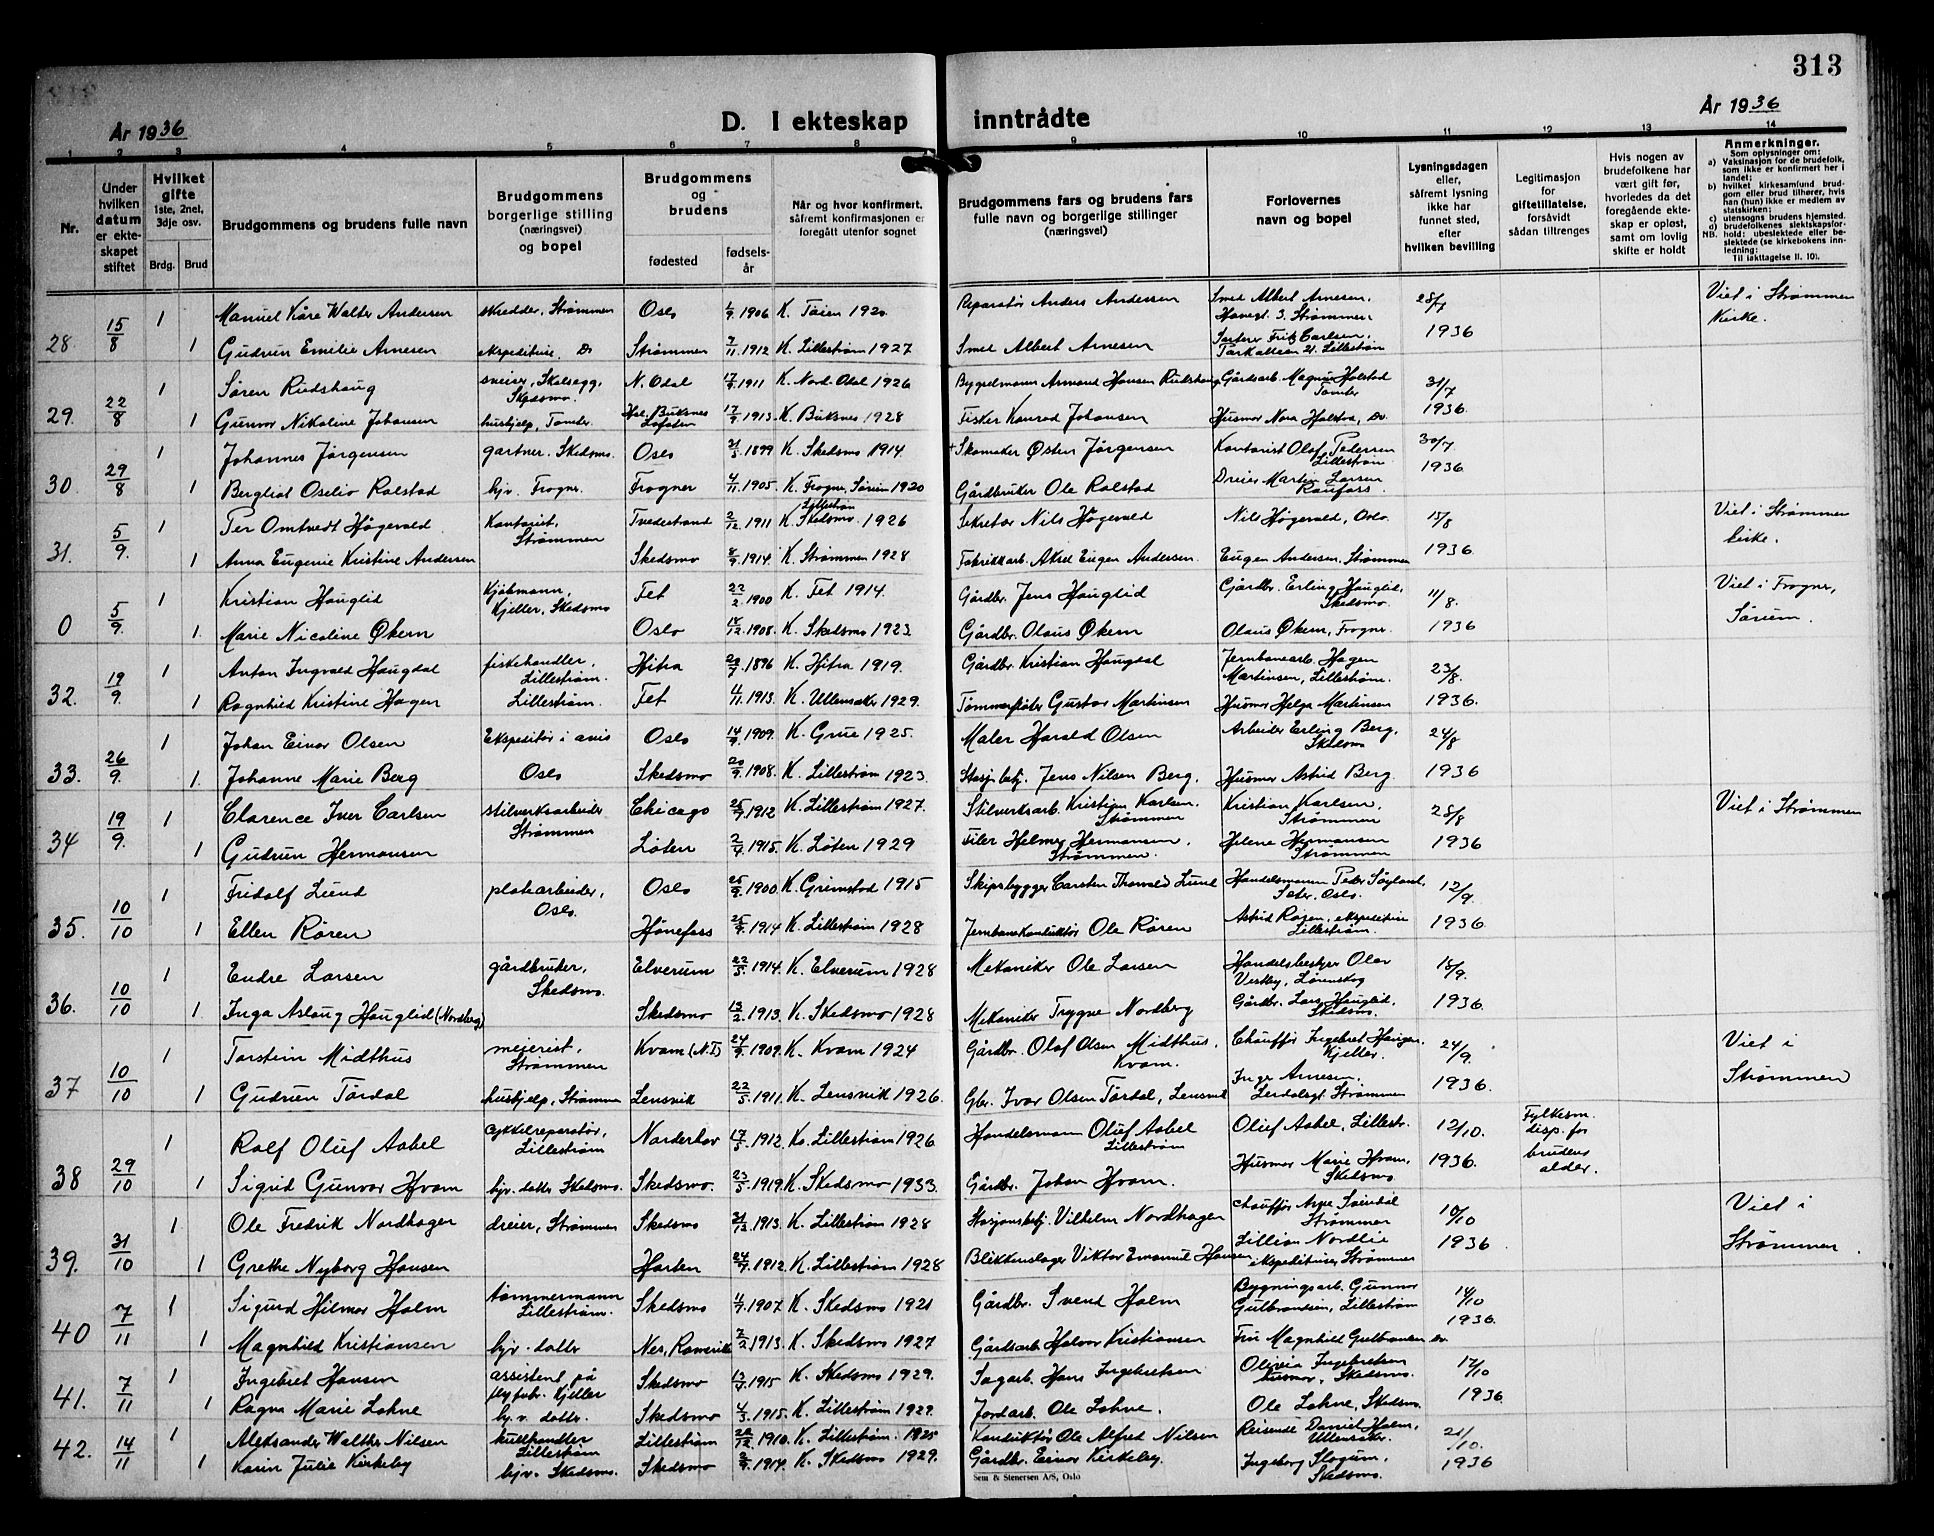 313
År 1936
D. I ekteskap inntrådte
År 1936
1 2 3 4 5 6 7 8 9 10 11 12 13 14
Nr.
Under hvilken datum er ekteskapet stiftet
Hvilket gifte 1ste, 2net, 3dje osv.
Brdg. Brud
Brudgommens og brudens fulle navn
Brudgommens borgerlige stilling (næringsvei) og bopel
Brudgommens og brudens
fødested
fødselsår
Når og hvor konfirmert, såfremt konfirmasjonen er foregått utenfor sognet
Brudgommens fars og brudens fars fulle navn og borgerlige stillinger (næringsvei)
Forlovernes navn og bopel
Lysningsdagen eller, såfremt lysning ikke har funnet sted, efter hvilken bevilling
Legitimasjon for giftetillatelse, forsåvidt sådan tiltrenges
Hvis nogen av brudefolkene har vært gift før, hvorledes da det foregående ekteskap er opløst, samt om lovlig skifte er holdt
Anmerkninger.
Som oplysninger om:
a) Vaksinasjon for de brudefolk, som ikke er konfirmert her i landet;
b) hvilket kirkesamfund brudgom eller brud tilhører, hvis han (hun) ikke er medlem av statskirken;
c) utensogns brudens hjemsted.
d) brudefolkenes slektskapsforhold: ubeslektede eller beslektede (se kirkebokens innledning;
NB. Til iakttagelse II. 10).
28. 15/8 1 Manuel Kåre Walter Andersen skredder, Strømmen Oslo 1906 K. Tøien 1920 Reparatør Anders Andersen Smed Albert Arnesen, Havegt. 3. Strømmen 28/7 Viet i Strømmen Kirke.
1 Gudrun Emilie Arnesen ekspeditrise, Do Strømmen 1912 K. Lillestrøm 1927 Smed Albert Arnesen Fritz Carlsen, Parkalleen 21. Lillestrøm 1936
29. 22/8 1 Søren Rudshaug sveiser, Skedsmo. N. Odal 17/9 1911 K. Nord-Odal 1926 Armand Hansen Rudshaug Gårdsarb. Magnus Holstad Tomter 31/7
1 Gunvor Nikoline Johansen hushjelp, Tomter. Buksnes Lofoten 17/9 1913 K. Buksnes 1928 Fisker Konrad Johansen Husmor Nora Holstad, Do. 1936.
30. 29/8 1 Johannes Jørgensen gartner, Skedsmo. Oslo 1899 K. Skedsmo 1914 + Skomaker Østen Jørgensen Kontorist Olaf Pedersen Lillestrøm 30/7
1 Bergliot Oselio Rolstad hjv. Frogner. Frogner 4/11 1905 K. Frogner, Sørum 1920 Gårdbruker Ole Rolstad Dreier Martin Larsen Raufoss. 1936
31. 5/9. 1 Per Omtvedt Høgevald Kontorist, Strømmen Tvedestrand 2/12 1911 K. Lillestrøm Skedsmo 1926 Sekretær Nils Høgevald Nils Høgevald, Oslo. 15/8 Viet i Strømmen kirke.
1 Anna Eugenie Kristine Andersen Skedsmo 1914 K. Strømmen 1928 Fabrikkarb. Aksel Eugen Andersen. Eugen Andersen, Strømmen 1936
0 5/9. 1 Kristian Hauglid Kjøbmann, Kjeller, Skedsmo Fet 22/2 1900 K. Fet 1914. Gårdbr. Jens Hauglid Gårdbr. Erling Hauglid, Skedsmo. 11/8. Viet i Frogner, Sørum.
1. Marie Nicoline Økern Oslo 1908. K. Skedsmo 1923 Gårdbr. Olaus Økern Olaus Økern, Frogner 1936
32. 19/9. 1 Anton Ingvald Haugdal fiskehandler, Lillestrøm. Hitra 1896 K. Hitra 1919. Gårdbr. Kristian Haugdal Jernbanearb. Hagen Martinsen, Lillestrøm. 23/8.
1 Ragnhild Kristine Hagen Lillestrøm. Fet 4/11 1913. K. Ullensaker 1929. Tømmerfløter Gustav Martinsen Husmor Helga Martinsen 1936.
33. 26/9. 1 Johan Einar Olsen Ekspeditør i avis Oslo 14/9 1909. K. Grue 1925. Maler Harald Olsen Arbeider Erling Berg, Skedsmo 24/8
1. Johanne Marie Berg Oslo Skedsmo 20/9 1908. K. Lillestrøm 1923. Stasj.betj. Jens Nilsen Berg. Husmor Astrid Berg. 1936
34 19/9. 1 Clarence Iver Carlsen stålverksarbeider Strømmen Chicago 1912 K. Lillestrøm 1927. Stålverksarb. Kristian Karlsen. Strømmen Kristian Karlsen, Strømmen 28/8 Viet i Strømmen
1 Gudrun Hermansen Løten 1915. K. Løten 1929 Filer Helmer Hermansen. Strømmen. Helene Hermansen Strømmen 1936
35. 10/10 1 Fridolf Lund platearbeider, Oslo. Oslo 1900. K. Grimstad 1915 Skipsbygger Carsten Thorvald Lund Handelsmann Peder Søyland, Oslo. 12/9.
1 Ellen Røren Hønefoss 1914 K. Lillestrøm 1928 Jernbanekonduktør Ole Røren Astrid Røren, ekspeditrise Lillestrøm. 1936
36. 10/10 1 Endre Larsen gårdbruker, Skedsmo. Elverum 22/5 1914. K. Elverum 1928 Mekaniker Ole Larsen Handelsbestyrer Olav Vestby, Lørenskog 18/9.
1 Inga Aslaug Hauglid (Nordberg) Skedsmo 13/2 1913. K. Skedsmo 1928 Mekaniker Trygve Nordberg Gårdbr. Lars Hauglid, Skedsmo. 1936
37 10/10 1 Torstein Midthus meierist, Strømmen Kvam (N.T) 24/9 1909. K. Kvam 1924 Gårdbr. Olaf Olsen Midthus, Kvam. Chauffør Ingebret Haugen, Kjeller. 24/9. Viet i Strømmen
1 Gudrun Tørdal hushjelp, Strømmen Lensvik 22/5 1911. K. Lensvik 1926. Gbr. Ivar Olsen Tørdal, Lensvik Inge Arnesen, Strømmen 1936.
38 29/10 1 Rolf Oluf Aabel cykkelreparatør, Lillestrøm Norderhov 17/5 1912. K. Lillestrøm 1926 Handelsmann Oluf Aabel Lillestrøm Oluf Aabel, Lillestr. 12/10. Fylkesm. disp. for brudens alder.
1 Sigrid Gunvor Hvam hjv. datter Skedsmo. Skedsmo. 23/5 1919. K. Skedsmo 1933. Gårdbr. Johan Hvam. Husmor Marie Hvam, Skedsmo 1936.
39. 31/10 1 Ole Fredrik Nordhagen dreier, Strømmen Skedsmo 31/12 1913. K. Lillestrøm 1928 Stasjonsbetj. Vilhelm Nordhagen chauffør Strømmen 10/10 Viet i Strømmen
1 Grethe Nyborg Hansen Horten 1912. K. Lillestrøm 1928 Blikkenslager Viktor Emanuel Hansen Lillian Nordlie ekspeditrise, Strømmen 1936
40 7/11 1 Sigurd Hilmar Holm tømmermann Lillestrøm. Skedsmo 1907. K. Skedsmo 1921 Gårdbr. Svend Holm Bygningsarb. Gunnar Gulbrandsen, Lillestrøm 14/10
1 Magnhild Kristiansen hjv. datter Nes, Romerike 2/2 1913. K. Skedsmo 1927 Gårdsarb. Halvor Kristiansen Fru Magnhild Gulbrandsen Do 1936.
41. 7/11 1 Ingebret Hansen assistent på flyfabr. Kjeller Skedsmo 1915 K. Skedsmo 1929. Sagarb. Hans Ingebretsen Olivia Ingebretsen husmor, Skedsmo. 12/10
1 Ragna Marie Lohne hj.v. datter. Skedsmo 4/3 1915. K. Lillestrøm 1929. Jordarb. Ole Lohne. Ole Lohne, Skedsmo. 1936
42. 14/11 1 Aleksander Walther Nilsen kullhandler Lillestrøm Lillestrøm 1910. K. Lillestrøm. 1925 Konduktør Ole Alfred Nilsen Reisende Daniel Holm, Ullensaker. 21/10.
1 Karin Julie Kirkeby hjv. Skedsmo. Skedsmo 1914. K. Skedsmo 1929. Gårdbr. Einar Kirkeby. Ingeborg Slogum, Skedsmo. 1936
Sem & Stenersen A/S, Oslo